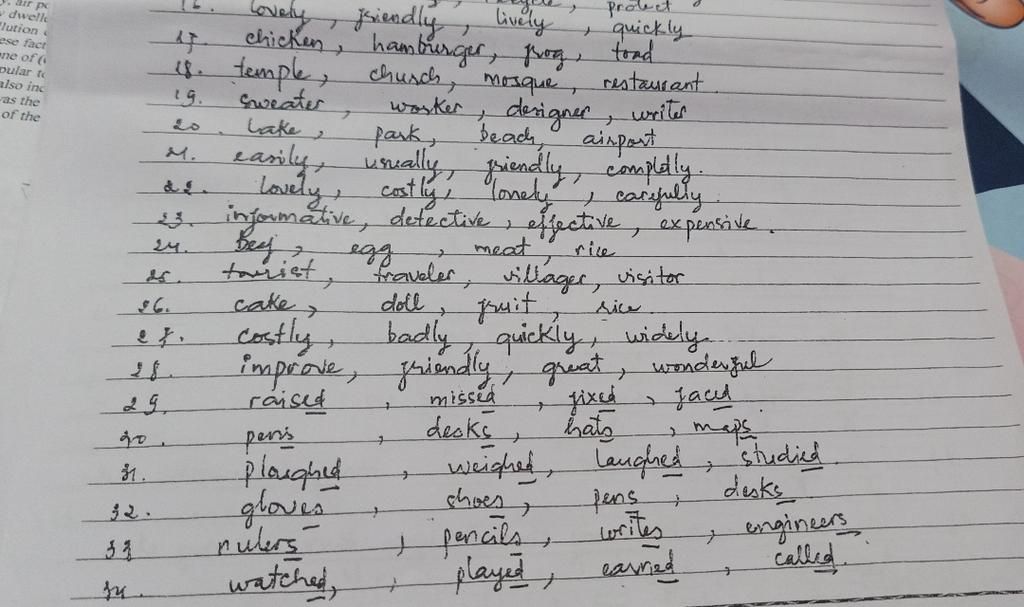 y, air po
dwelle
llution
ese fact
ne of (
pular t
also inc
was the
of the
protect
16. lovely, friendly, lively, quickly
17. chicken, hamburger, frog, toad
18. temple, church, mosque, restaurant.
19. sweater, worker, designer, writer
20. Lake, park, beach, airport
21. easily, usually, friendly, completly.
22. lovely, costly, lonely, carefully.
23. informative, detective, effective, expensive.
24. beef, egg, meat, rice
25. tourist, traveler, villager, visitor
26. cake, doll, fruit, rice.
27. costly, badly, quickly, widely.
28. improve, friendly, great, wonderful
29. raised, missed, fixed, faced
30. pens, desks, hats, maps
31. ploughed, weighed, laughed, studied.
32. gloves, shoes, pens, desks
33 rulers, pencils, writes, engineers
34. watched, played, earned, called.